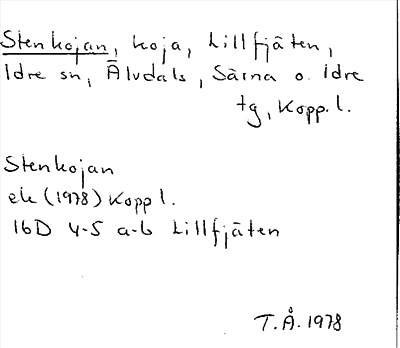 Stenkojan, koja, Lillfjäten,
Idre sn, Älvdals, Särna o. Idre
tg, Kopp. l.
Stenkojan
ek (1978) Kopp l.
16D 4-5 a-b Lillfjäten
T.Å. 1978